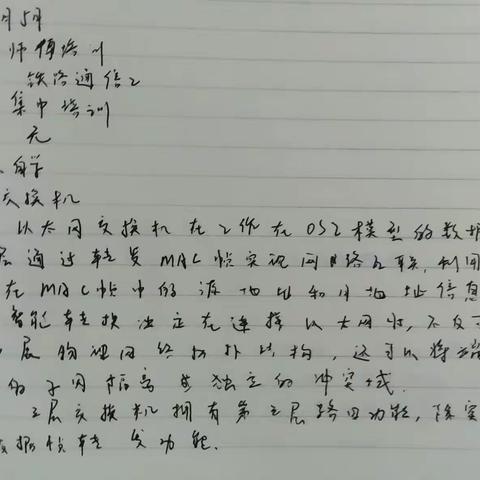 月5月
师傅培训
铁路通信工
集中培训
无
、自学
交换机
以太网交换机在工作在OSI模型的数据
层通过转发MAC帧实现网络互联,利用
在MAC帧中的源地址和目地址信息
智能转换决定在连接以太网时,不仅可
展物理网络拓扑结构,还可以将
的子网隔离成独立的冲突域.
三层交换机拥有第三层路由功能,除实
数据帧转发功能.